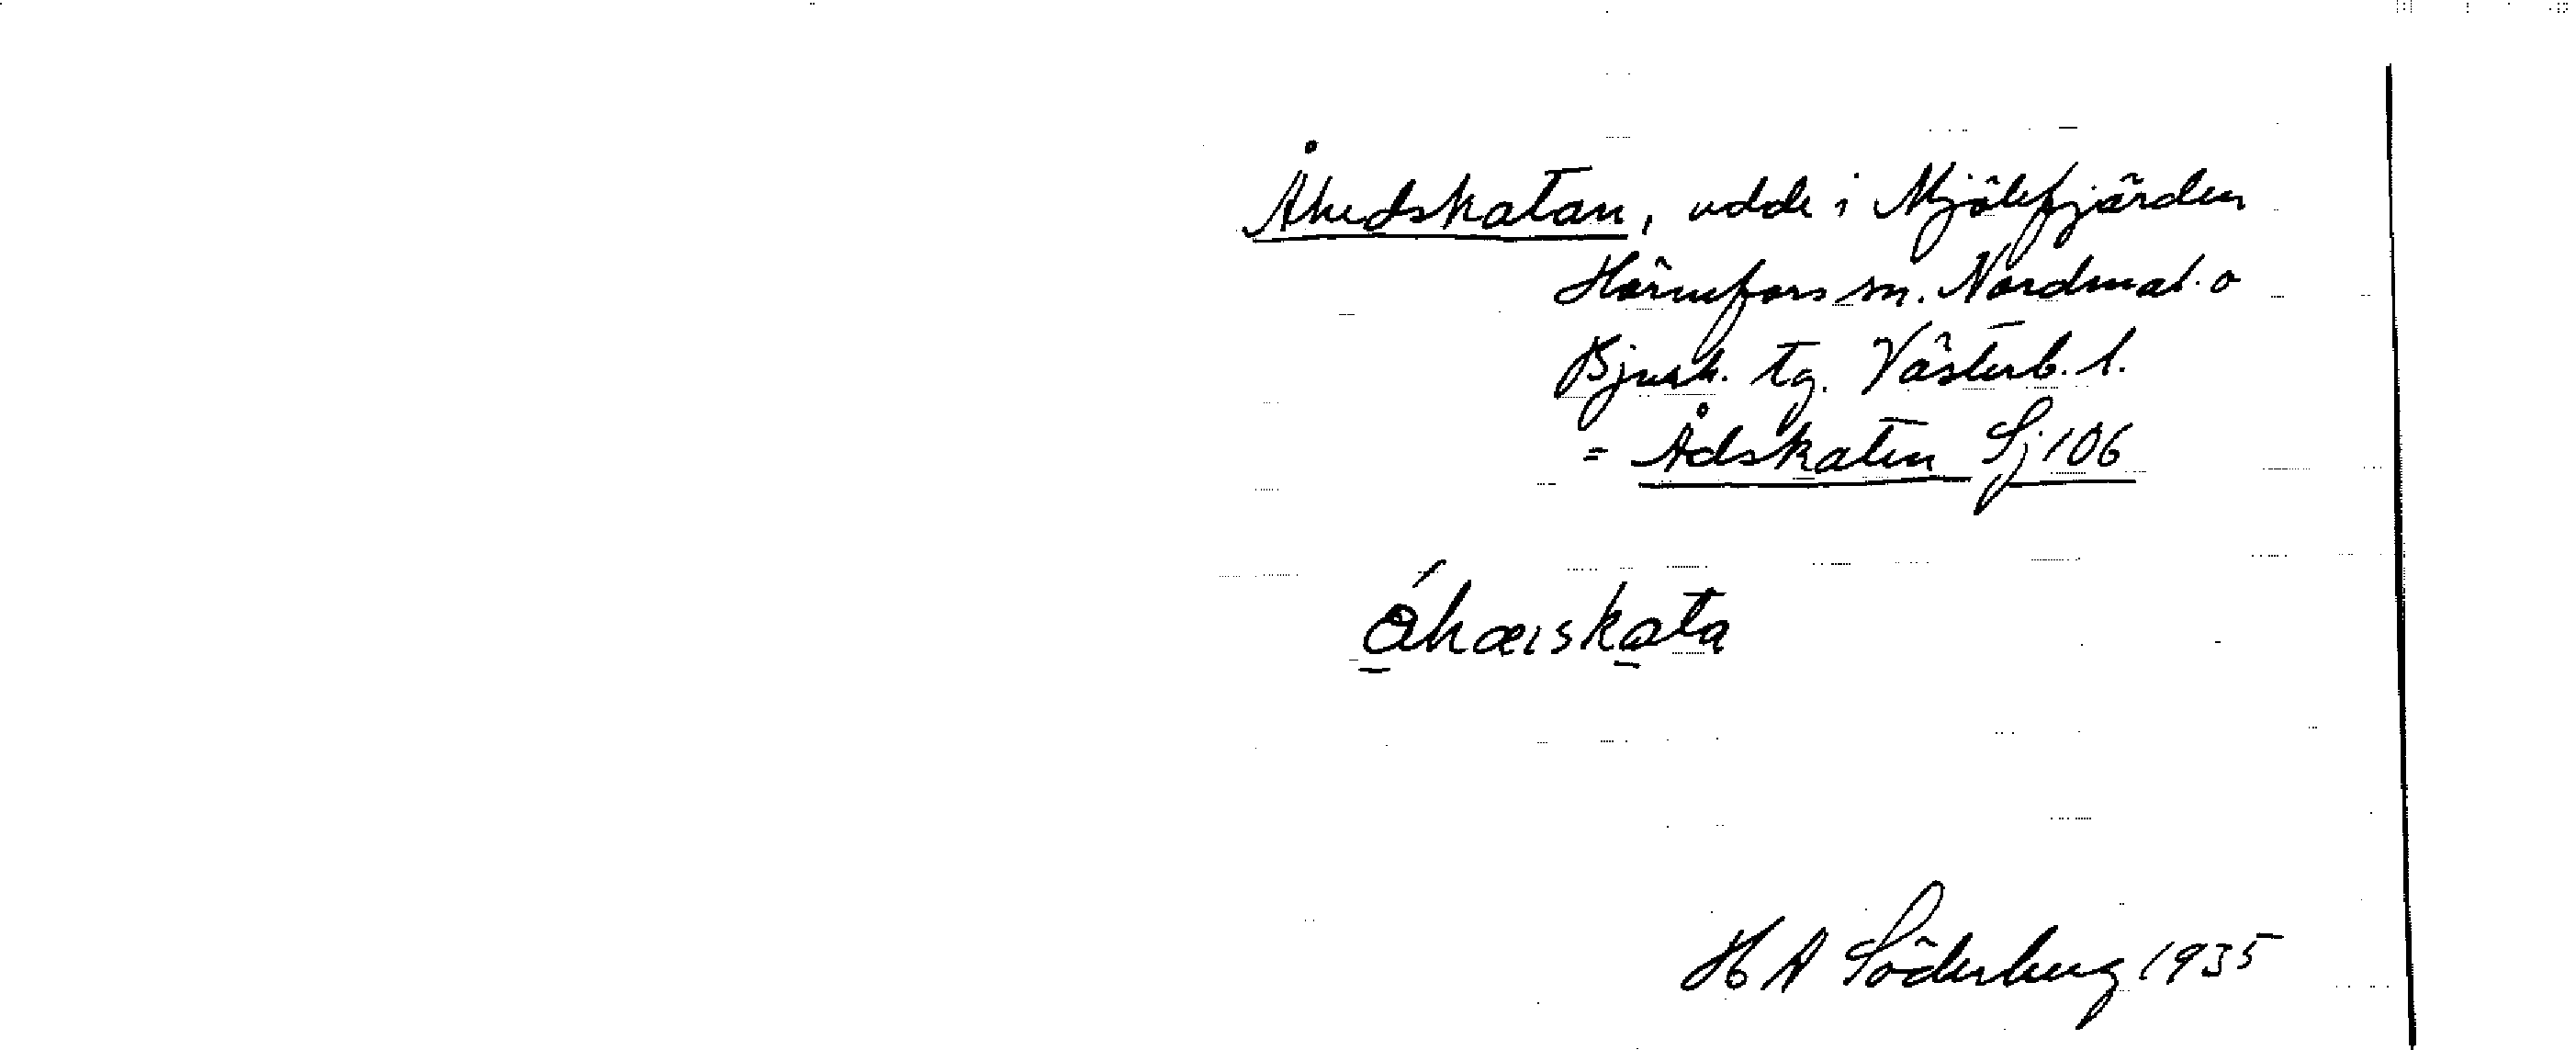 Åhedskatan, udde i Mjölefjärden
Hörnefors sn. Nordmal. o
Bjurh. tg. Västerb. l.
= Ådskaten Sj 106
åhæiskata
H A Söderberg 1935